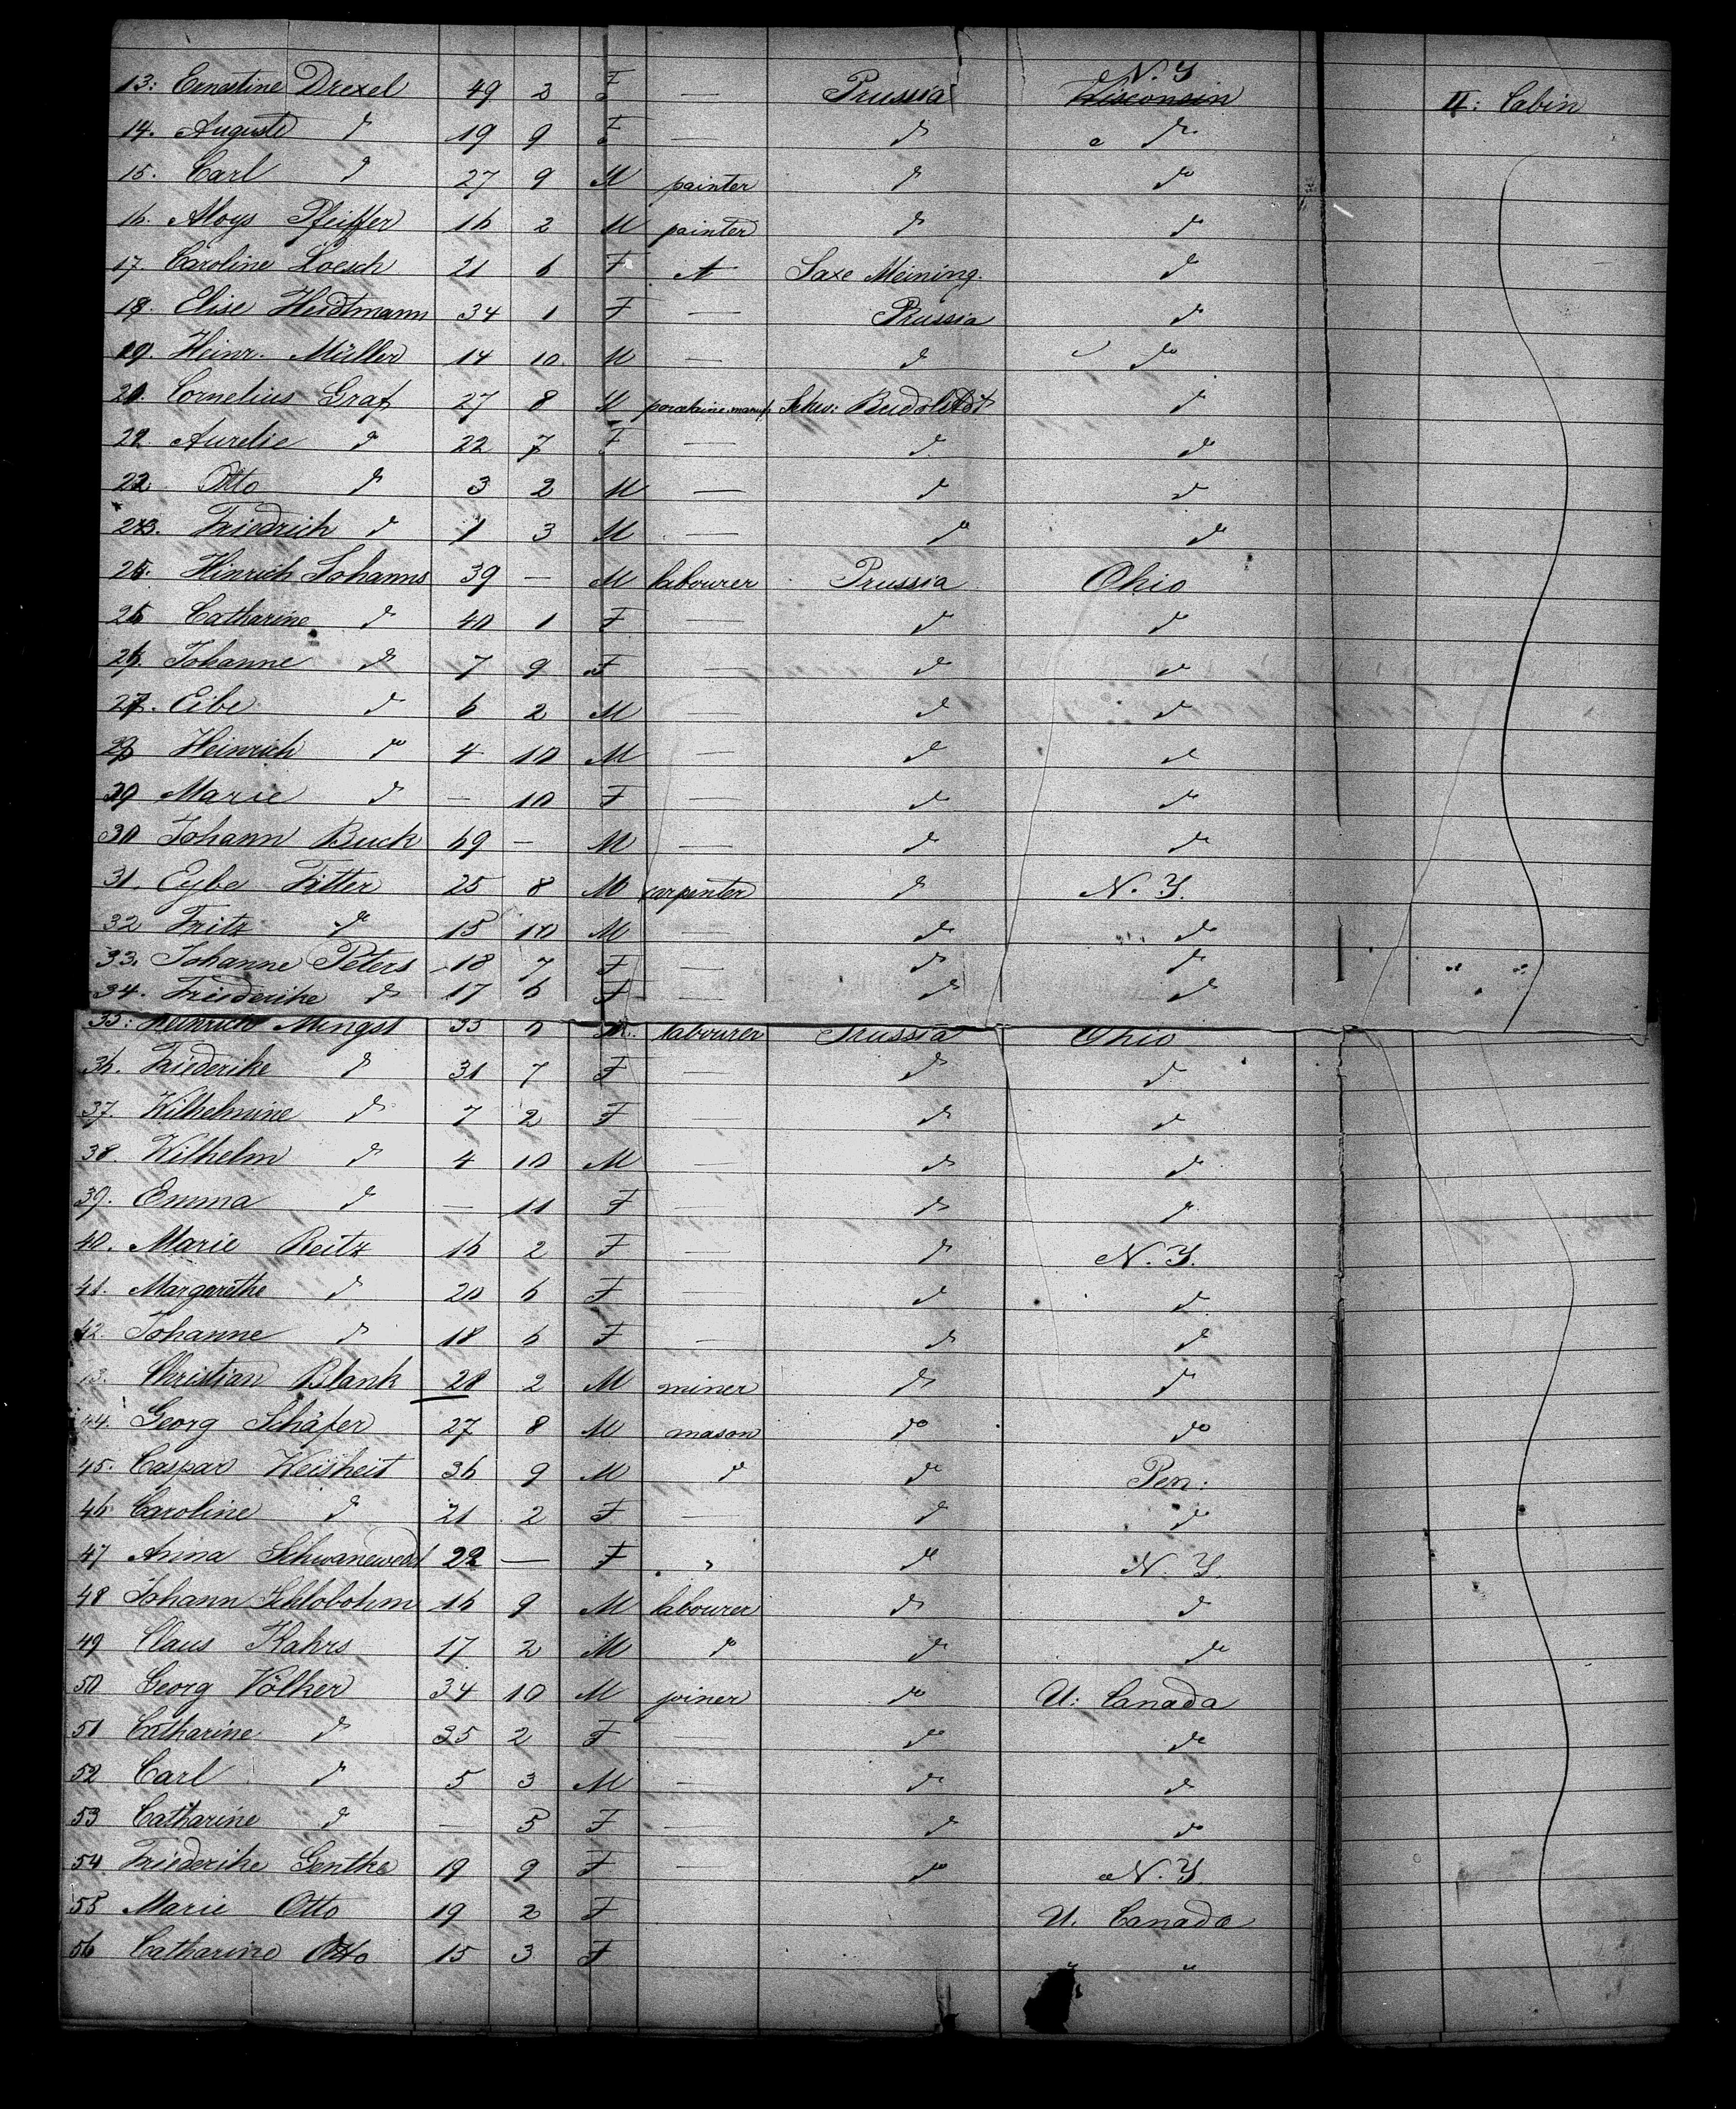 13: Ernestine Drexel 49 2 F — Prussia N. Y. Wisconsin II: Cabin
14. Auguste do 19 9 F — do do
15. Carl do 27 9 M painter do do
16. Aloys Pfeiffer 16 2 M painter do do
17. Caroline Loesch 21 6 F Saxe Meining. do
18. Elise Heidtmann 34 1 F — Prussia do
19. Heinr. Müller 14 10 M — do do
20. Cornelius Graf 27 8 M porcelaine manuf. Schw: Rudolstdt do
22. Aurelie do 22 7 F — do do
22 Otto do 3 2 M — do do
23. Friedrich do 1 3 M — do do
25. Hinrich Johanns 39 — M labourer Prussia Ohio
25 Catharine do 40 1 F — do do
26. Johanne do 7 9 F — do do
27. Eibe do 6 2 M — do do
28 Heinrich do 4 10 M — do do
29 Marie do — 10 F — do do
30 Johann Buck 69 — M — do do
31. Eybe Fitter 25 8 M carpenter do N. Y.
32 Fritz do 15 10 M — do do
33. Johanne Peters 18 7 F — do do
34. Friederike do 17 6 F — do do
35: Heinrich Mingst 33 6 M. labourer Prussia Ohio
36. Friederike do 31 7 F — do do
37. Wilhelmine do 7 2 F — do do
38. Wilhelm do 4 10 M — do do
39. Emma do — 11 F — do do
40. Marie Reitz 16 2 F — do N. Y.
41. Margarethe do 20 6 F — do do
42. Johanne do 18 6 F — do do
43. Christian Blank 28 2 M miner do do
44. Georg Schäfer 27 8 M mason do do
45. Caspar Weisheit 36 9 M do do Pen:
46 Caroline do 21 2 F — do do
47 Anna Schwanewedel 22 — F " do N. Y.
48 Johann Schlobohm 16 9 M labourer do do
49 Claus Kahrs 17 2 M do do do
50 Georg Völker 34 10 M joiner do U: Canada
51 Catharine do 35 2 F — do do
52 Carl do 5 3 M — do do
53 Catharine do — 5 F — do do
54 Friederike Gentke 19 9 F — do N. Y
55 Marie Otto 19 2 F U. Canada
56 Catharine Otto 15 3 F " "